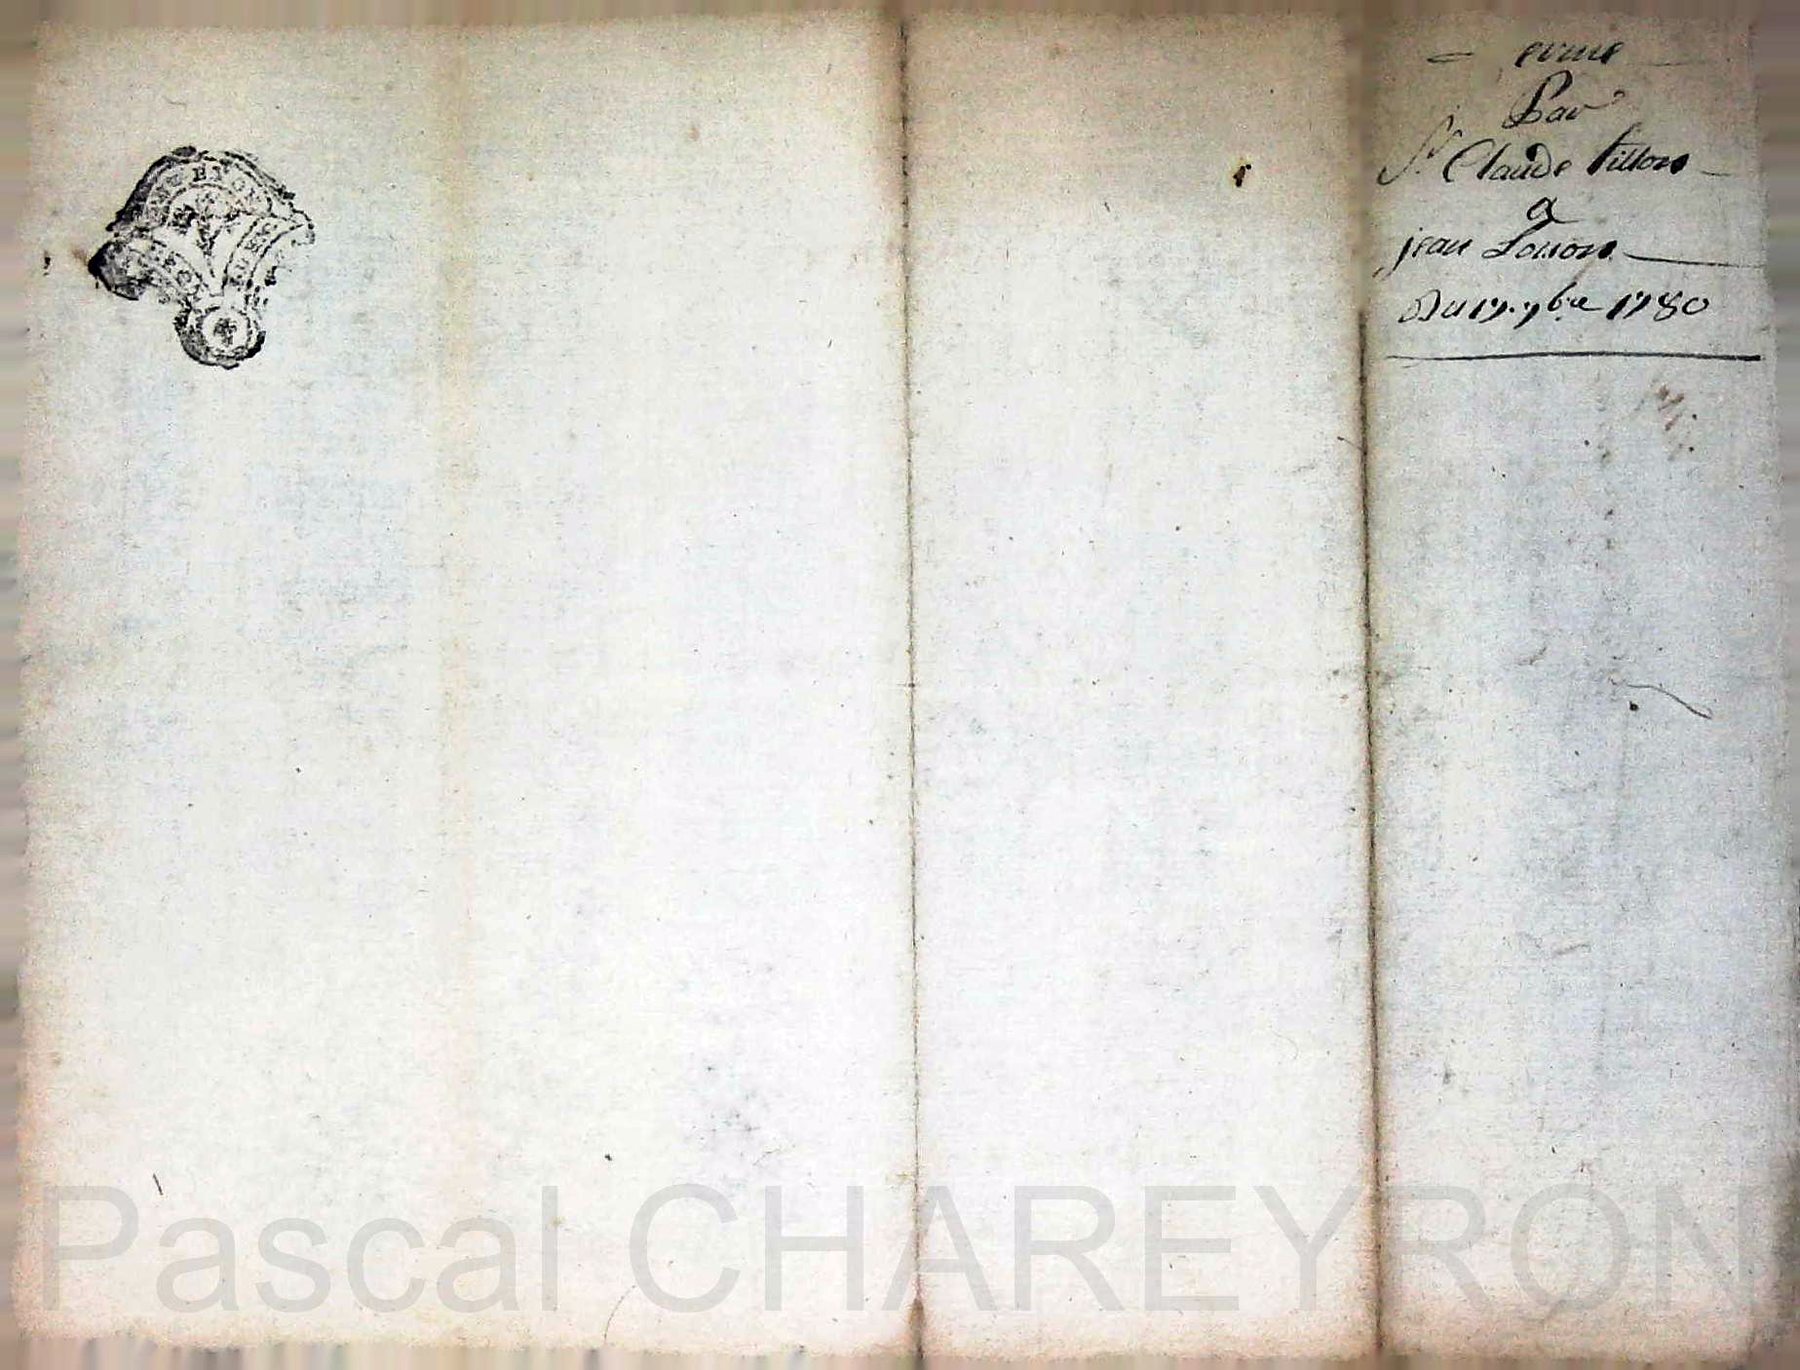 Par
Sr Claude fillon
a
jean Louon
Du 17. 9bre 1780
Pascal CHAREYRON